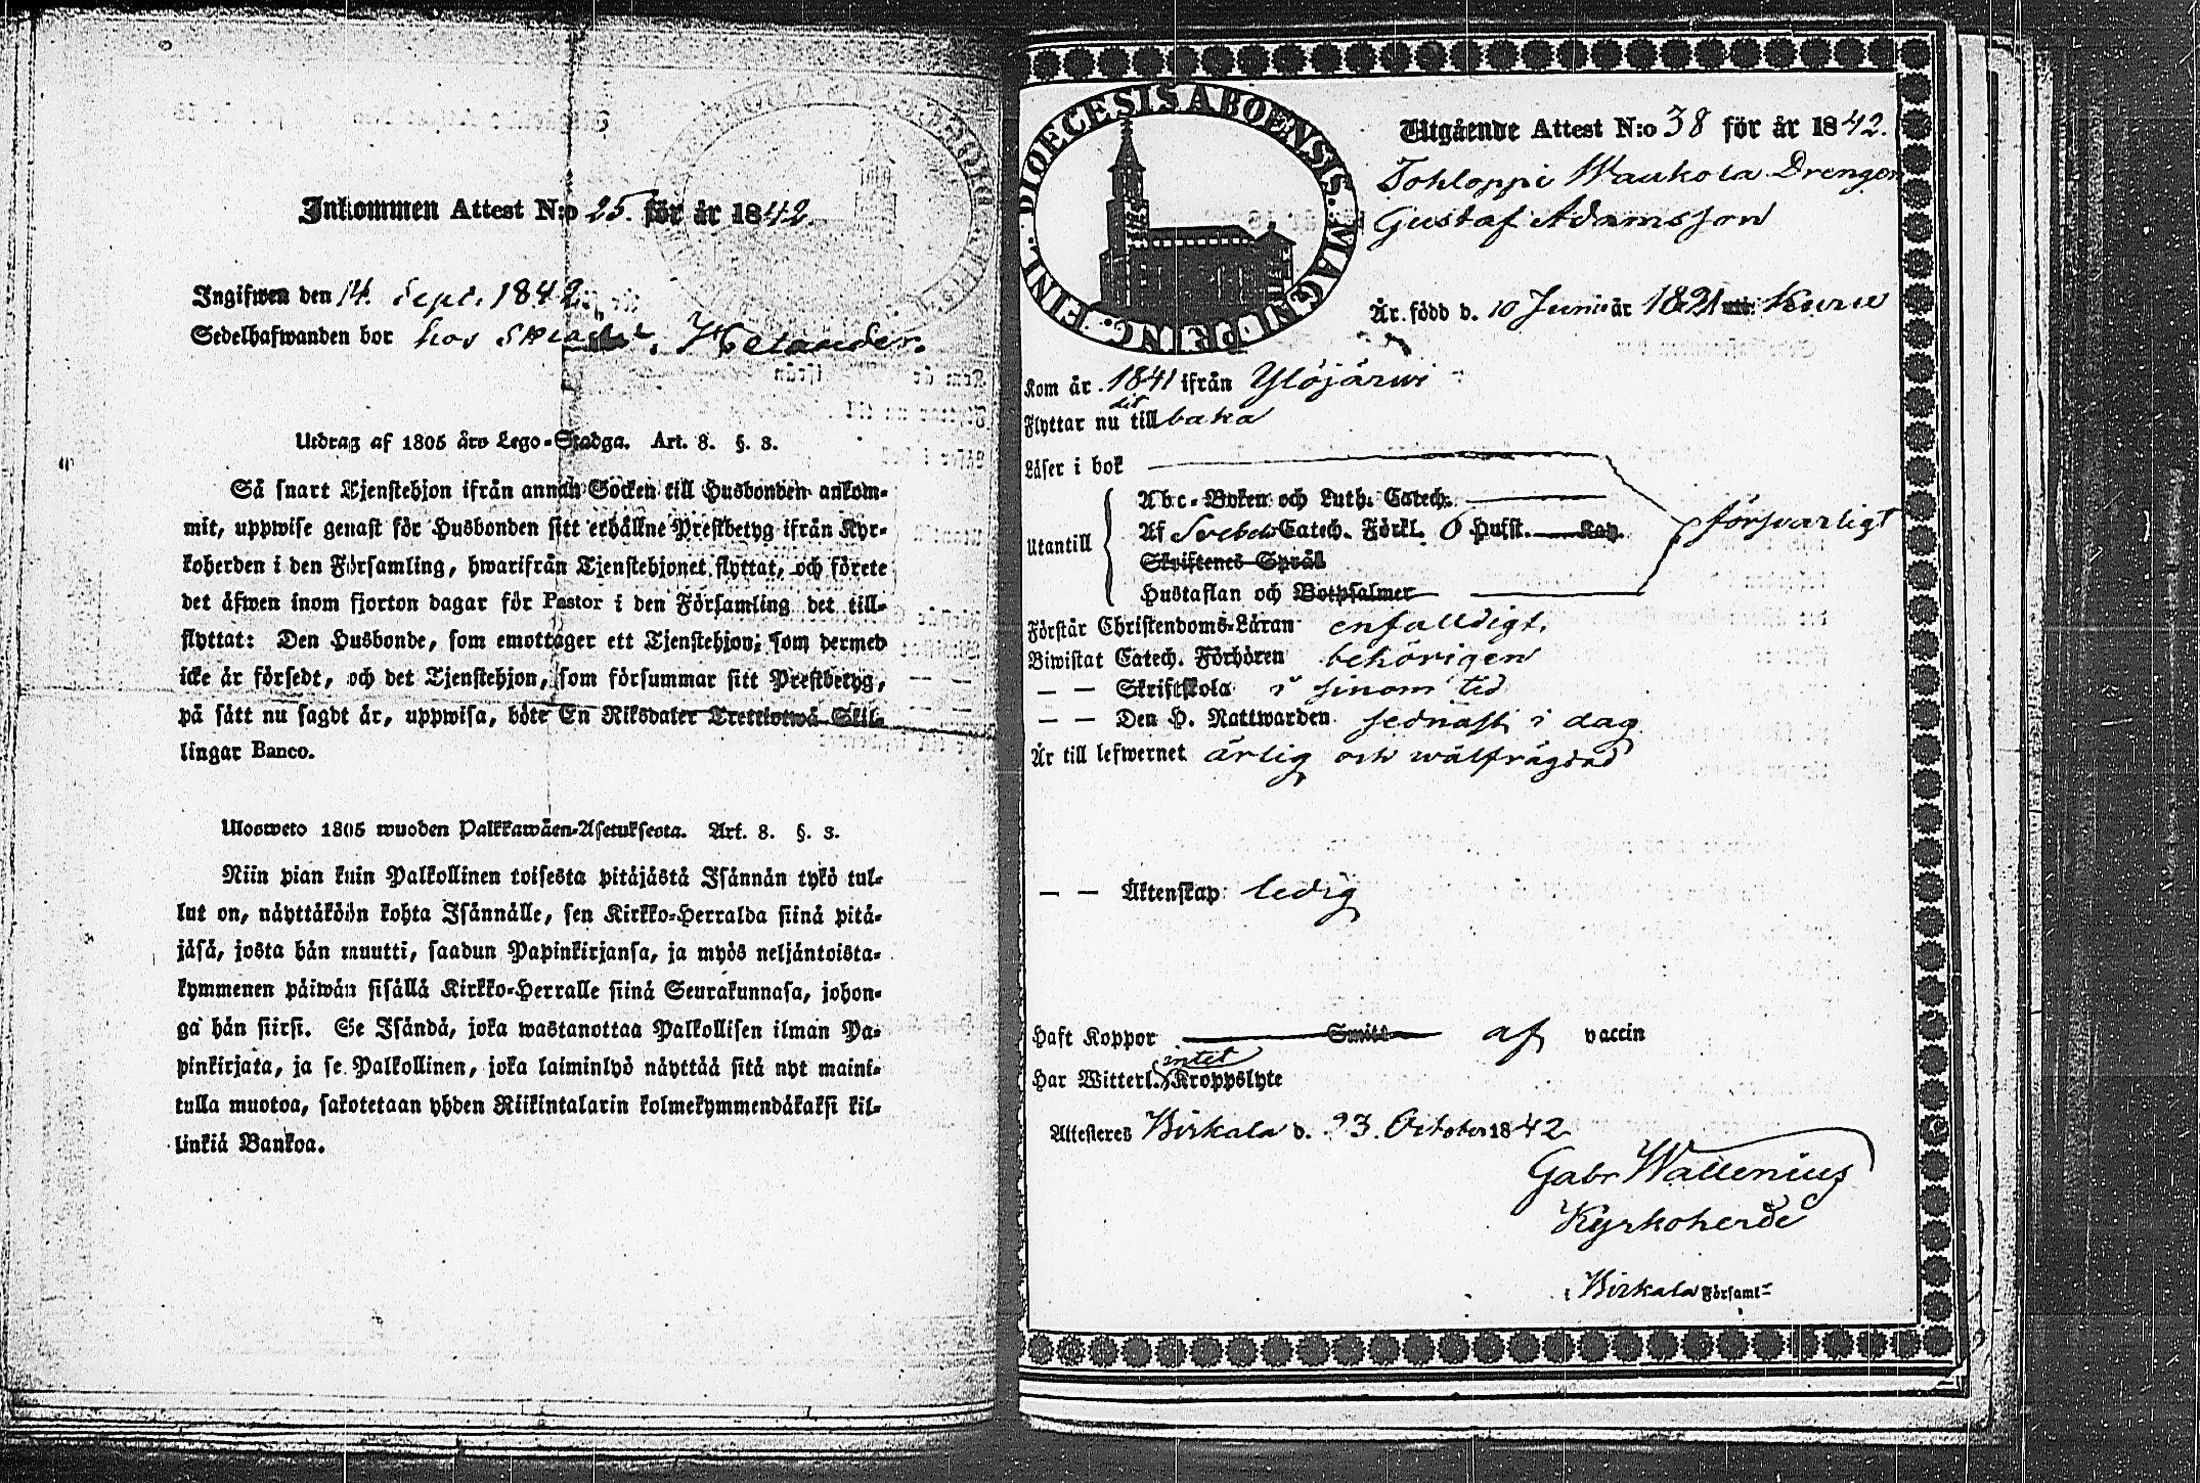 Inkommen Attest N:o 25. för år 1842.
Ingifwen den 14. Sept. 1842
Sedelhafwanden bor hos Helander.
Utdrag af 1805 års Lego-Stadga. Art. 8. §. 3.
Så snart Tjenstehjon ifrån annan Socken till Husbonden ankom-
mit, uppwise genast för Husbonden sitt erhållne Prestbetyg ifrån Kyr-
koherden i den Församling, hwarifrån Tjenstehjonet flyttat, och förete
det äfwen inom fjorton dagar för Pastor i den Församling det till-
flyttat: Den Husbonde, som emottager ett Tjenstehjon, som dermed
icke är försedt, och det Tjenstehjon, som försummar sitt Prestbetyg,
på sätt nu sagdt är, uppwisa, böte En Riksdaler Trettiotwå Skil-
lingar Banco.
Ulosweto 1805 wuoden Palkkawäen-Asetuksesta. Art. 8. §. 3.
Niin pian kuin Palkollinen toisesta pitäjästä Isännän tykö tul-
lut on, näyttäköön kohta Isännälle, sen Kirkko-Herralda siinä pitä-
jäsä, josta hän muutti, saadun Papinkirjansa, ja myös neljäntoista-
kymmenen päiwän sisällä Kirkko-Herralle siinä Seurakunnasa, johon-
ga hän siirsi. Se Isändä, joka wastanottaa Palkollisen ilman Pa-
pinkirjata, ja se Palkollinen, joka laiminlyö näyttää sitä nyt maini-
tulla muotoa, sakotetaan yhden Riikintalarin kolmekymmendäkaksi kil-
linkiä Bankoa.
DIOECESIS ABOENSIS. MAGNI PRINC. FINL.
Utgående Attest N:o 38 för år 1842.
Tohloppi Waukola Drengen
Gustaf Adamsson
Är född d. 10 Junii år 1821 uti Kuru
Kom år 1841 ifrån Ylöjärwi
Flyttar nu dit tillbaka
Läser i bok
Utantill
Abc-Boken och Luth. Catech.
Af Svebel. Catech. Förkl. O Husst. Kay. försvarligt
Skriftenes Språk
Hustaflan och Botpsalmer
Förstår Christendoms-Läran enfalldigt.
Biwistat Catech. Förhören behörigen
— — Skriftskola i sinom tid
— — Den H. Nattwarden sednast i dag
Är till lefwernet ärlig och wälfrägdad
— — Äktenskap ledig
Haft Koppor Smitt af vaccin
Har Witterl. intet Kroppslyte
Attesteres Birkala d. 23. October 1842
Gabr Wallenius
Kyrkoherde
i Birkala Församl: